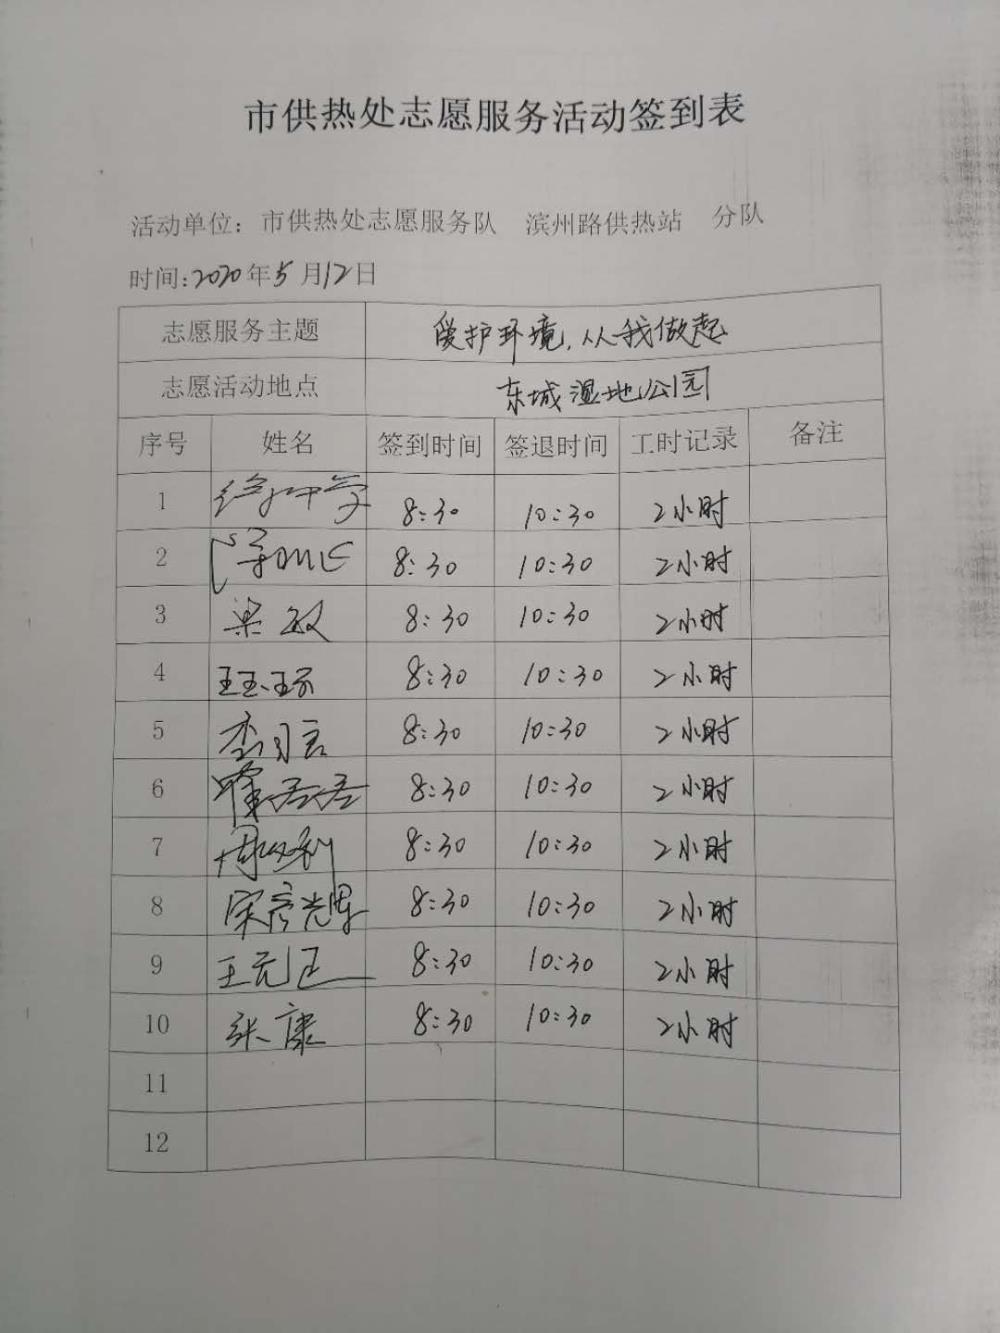 市供热处志愿服务活动签到表
活动单位：市供热处志愿服务队 滨州路供热站 分队
时间:2020年5月12日
志愿服务主题 爱护环境,从我做起
志愿活动地点 东城湿地公园
序号 姓名 签到时间 签退时间 工时记录 备注
1 8:30 10:30 2小时
2 8:30 10:30 2小时
3 梁敏 8:30 10:30 2小时
4 8:30 10:30 2小时
5 8:30 10:30 2小时
6 8:30 10:30 2小时
7 8:30 10:30 2小时
8 8:30 10:30 2小时
9 8:30 10:30 2小时
10 张康 8:30 10:30 2小时
11
12